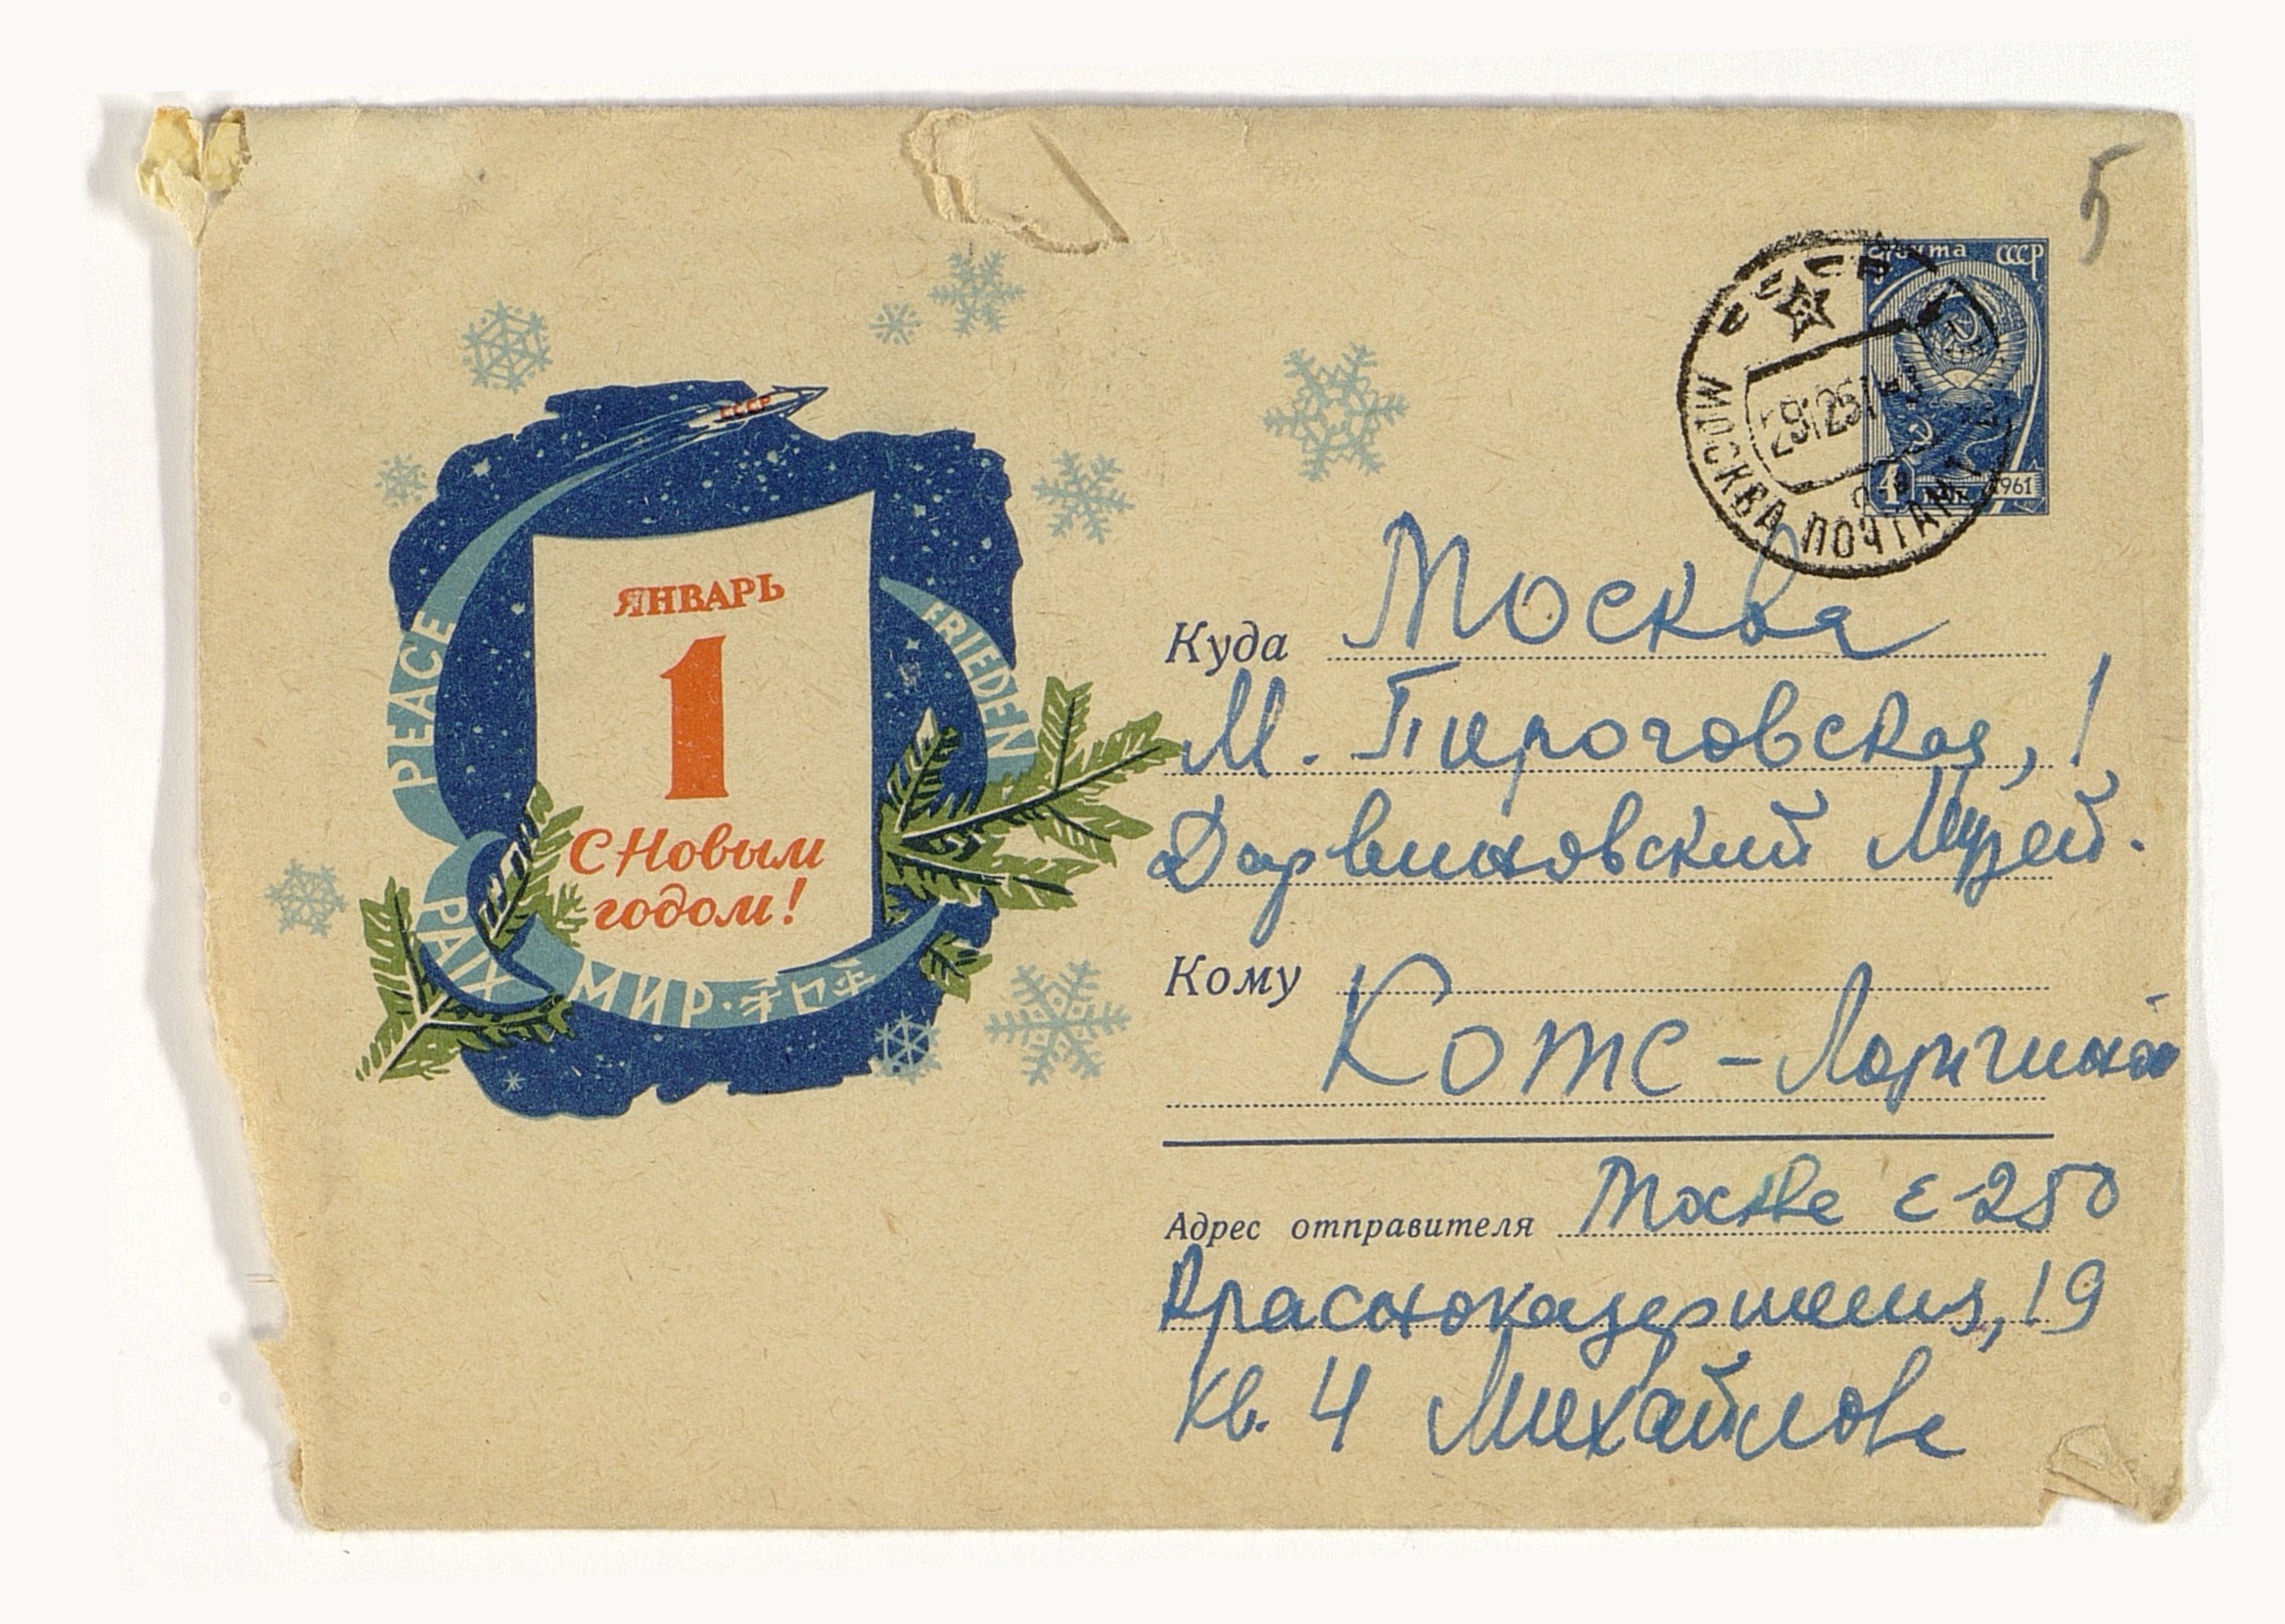 5
почта СССР
4 коп. 1961
МОСКВА ПОЧТАМТ
СССР
PEACE
FRIEDEN
PAIX
МИР · 和平
ЯНВАРЬ
1
С Новым
годом!
Куда Москва
М. Пироговская, 1
Дарвиновский Музей.
Кому
Котс - Ладыгиной
Адрес отправителя Москва Е-250
Красноказарменная, 19
кв. 4 Михайлова